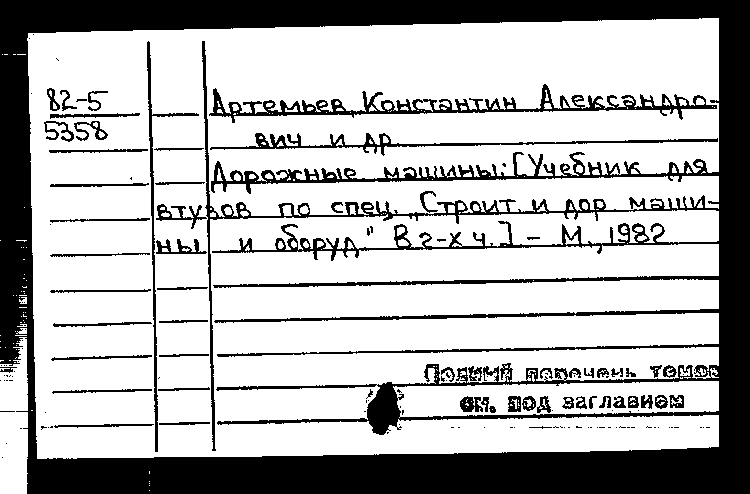 82-5
5358
Артемьев, Константин Александро-
вич и др
Дорожные машины: [Учебник для
втузов по спец. „Строит. и дор маши-
ны и оборуд." В 2-х ч.] - М., 1982
Полный перечень томов
см. под заглавием